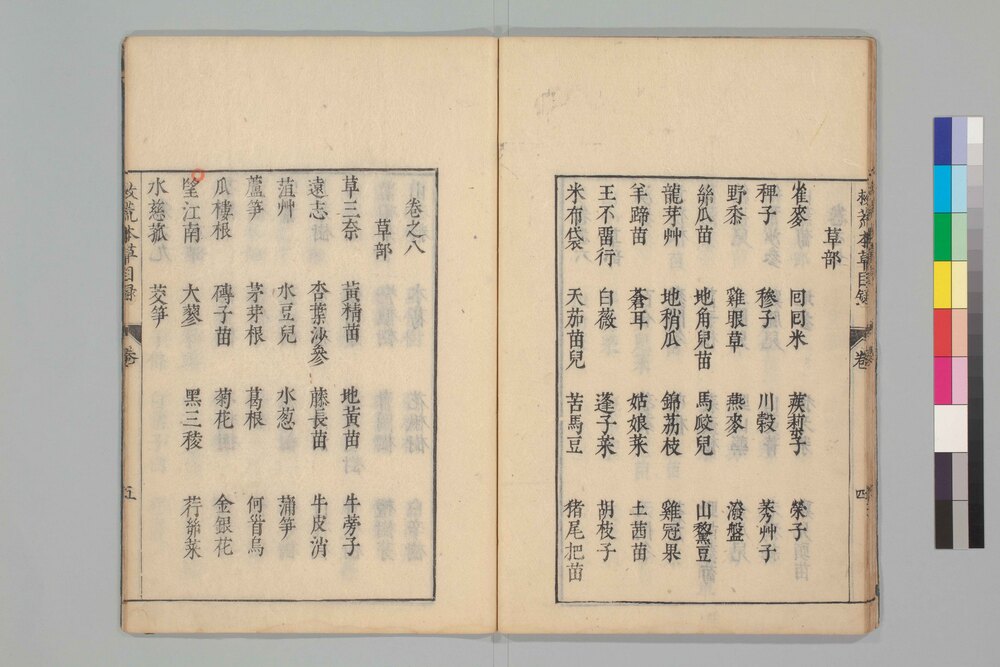 救荒本草目録 卷 四
草部
雀麥 回回米 蒺藜子 䔛子
稗子 䅟子 川穀 莠艸子
野黍 雞眼草 燕麥 潑盤
絲瓜苗 地角兒苗 馬㼎兒 山黧豆
龍芽艸 地稍瓜 錦荔枝 雞冠果
羊蹄苗 蒼耳 姑娘菜 土茜苗
王不留行 白薇 蓬子菜 胡枝子
米布袋 天茄苗兒 苦馬豆 猪尾把苗
卷之八
草部
草三奈 黃精苗 地黃苗 牛蒡子
遠志 杏葉沙參 藤長苗 牛皮消
菹艸 水豆兒 水葱 蒲笋
蘆笋 茅芽根 葛根 何首烏
瓜樓根 磚子苗 菊花 金銀花
望江南 大蓼 黑三稜 荇絲菜
水慈菰 茭笋
救荒本草目録 卷 五